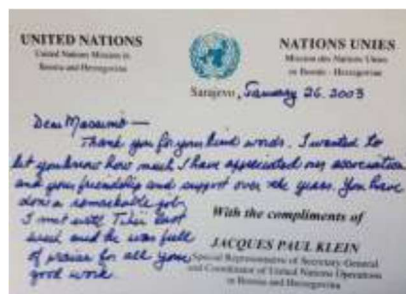 UNITED NATIONS
United Nations Mission in
Bosnia and Herzegovina
NATIONS UNIES
Mission des Nations Unies
en Bosnie - Herzégovine
Sarajevo, January 26, 2003
Dear Massimo —
Thank you for your kind words. I wanted to
let you know how much I have appreciated our association
and your friendship and support over the years. You have
done a remarkable job.
I met with last
week and he was full
of praise for all your
good work.
With the compliments of
JACQUES PAUL KLEIN
Special Representative of Secretary General
and Coordinator of United Nations Operations
in Bosnia and Herzegovina